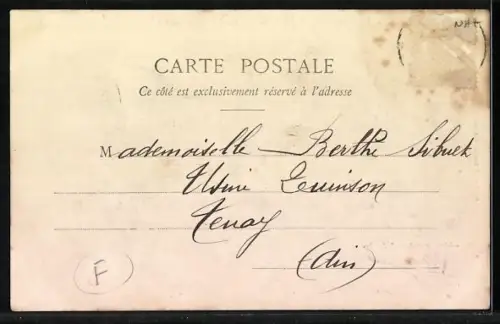 CARTE POSTALE
Ce côté est exclusivement réservé à l'adresse
Mademoiselle Berthe Sibuet
Usine Quinson
Tenay
(Ain)
F